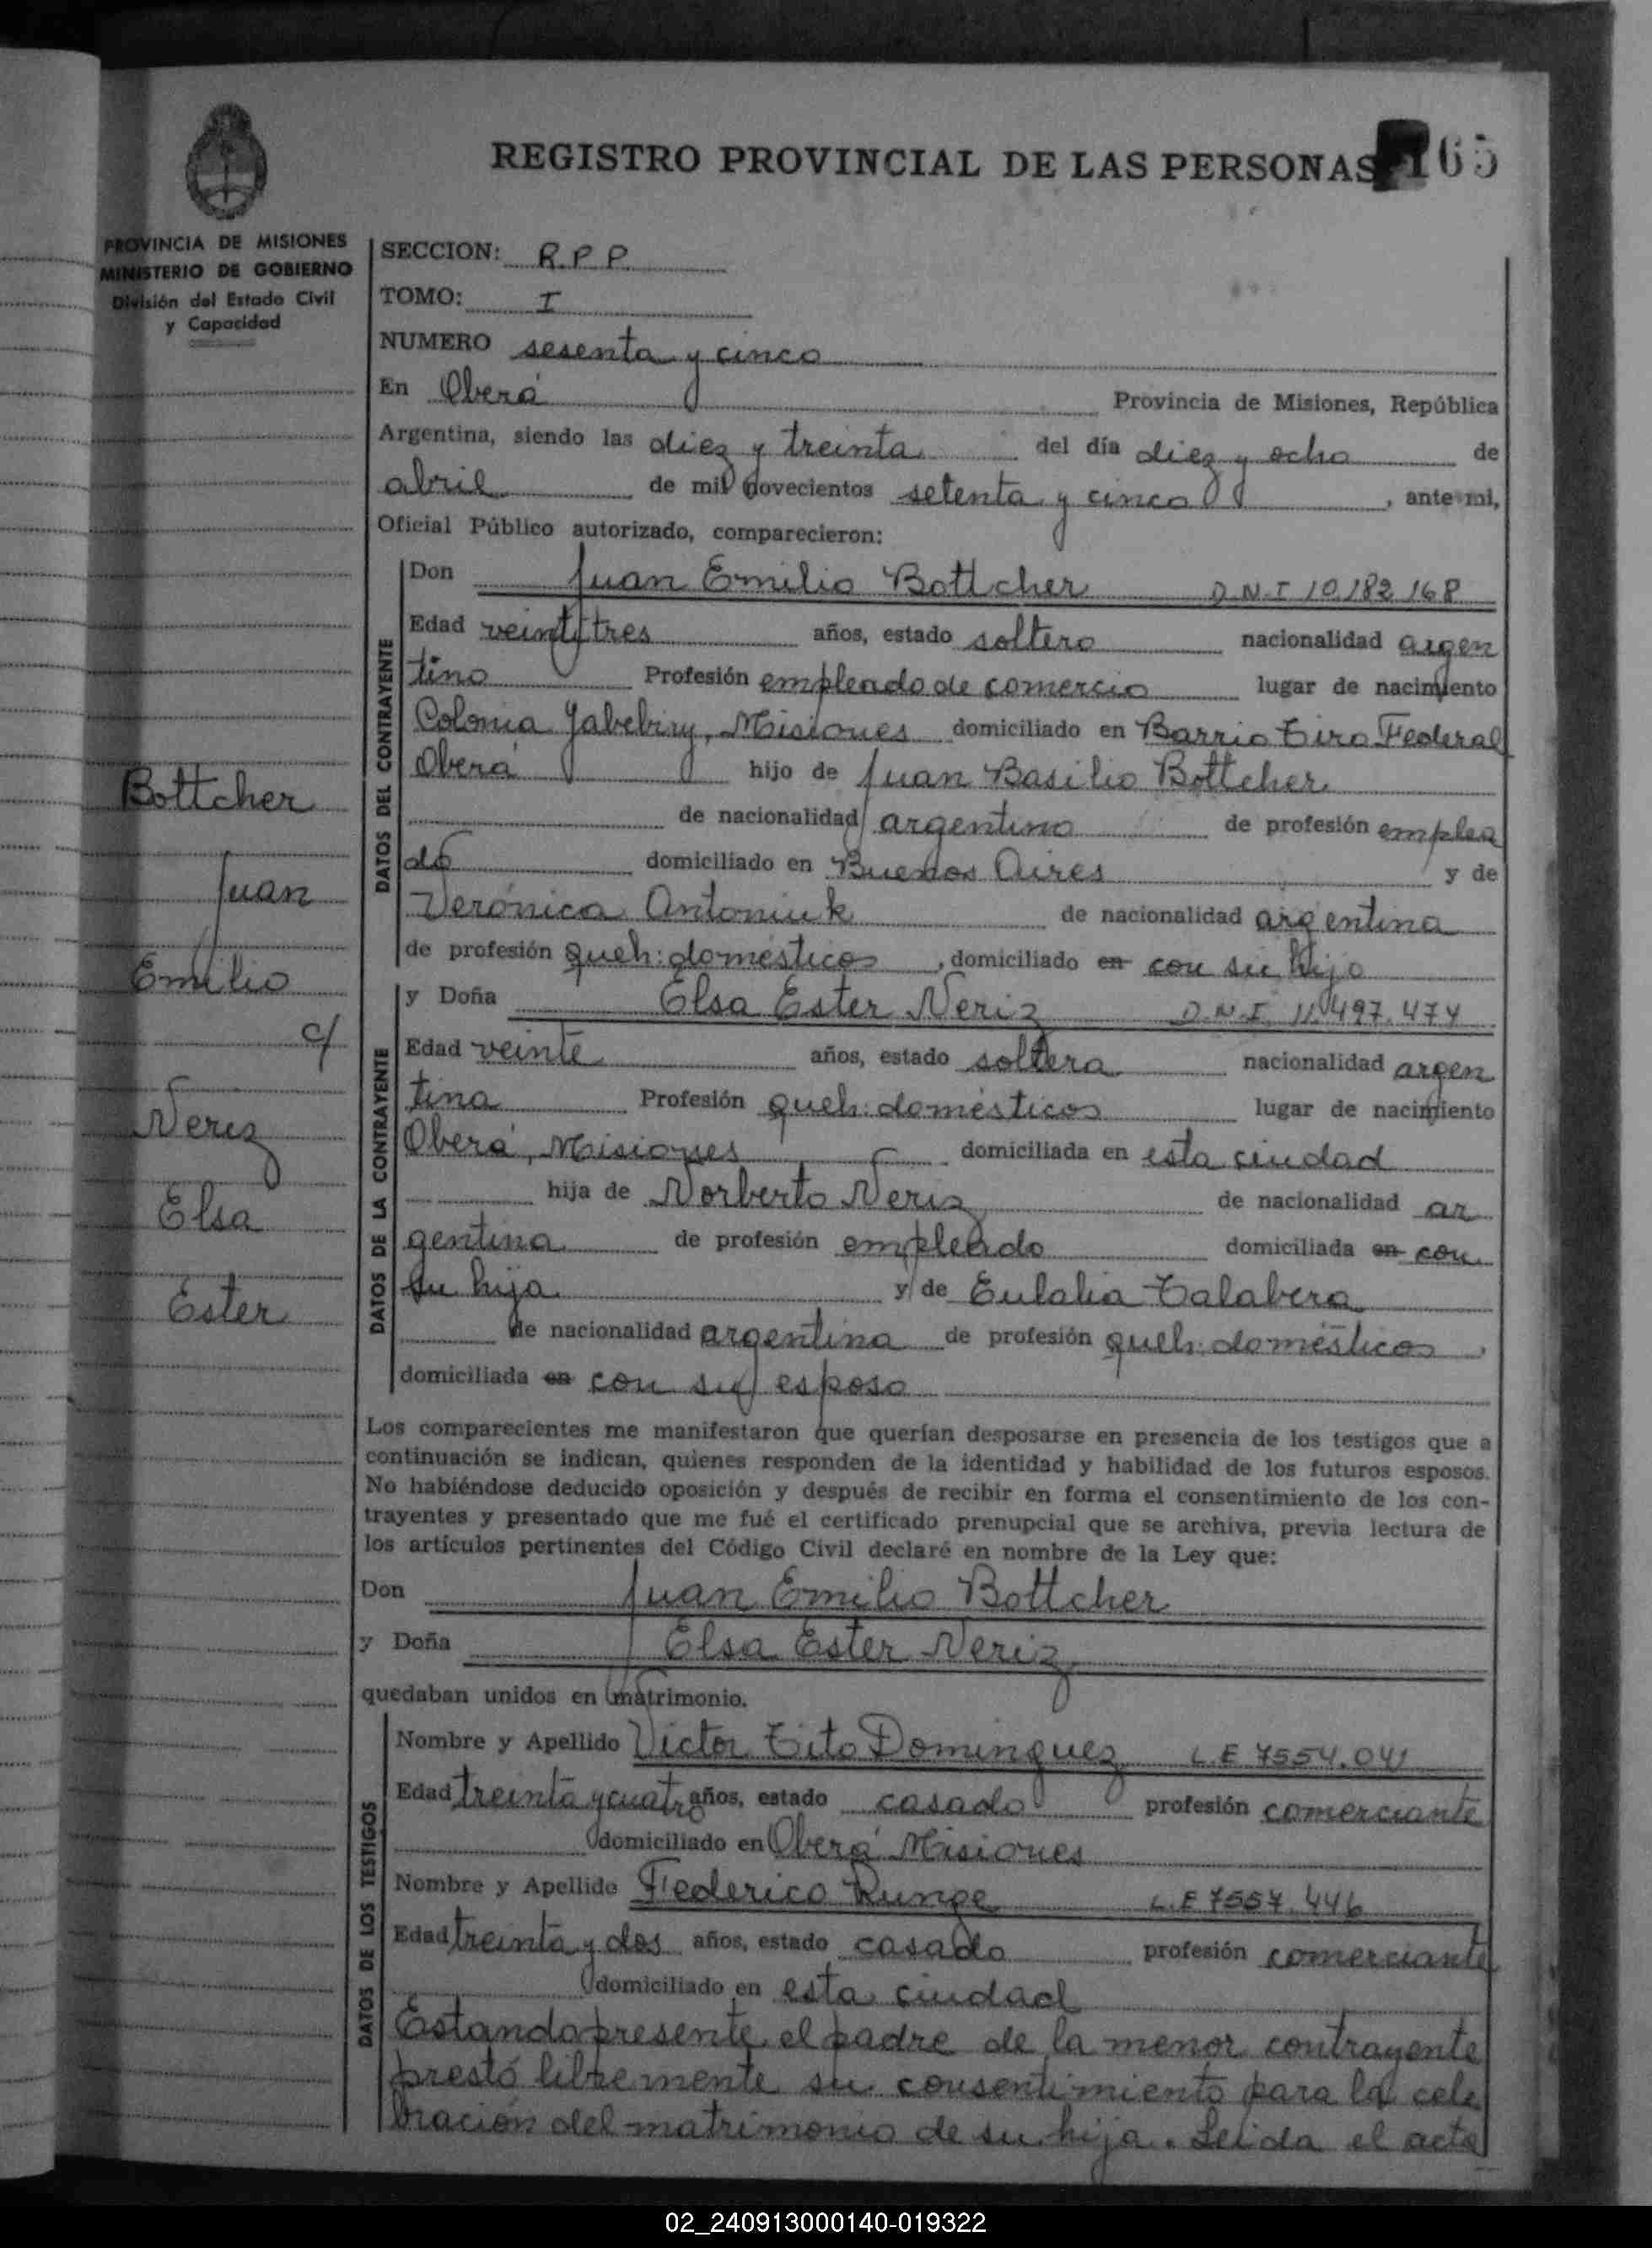 REGISTRO PROVINCIAL DE LAS PERSONAS 165
PROVINCIA DE MISIONES
MINISTERIO DE GOBIERNO
División del Estado Civil
y Capacidad
SECCION: R.P.P.
TOMO: I
NUMERO sesenta y cinco
En Oberá Provincia de Misiones, República
Argentina, siendo las diez y treinta del día diez y ocho de
abril de mil novecientos setenta y cinco, ante mi,
Oficial Público autorizado, comparecieron:
DATOS DEL CONTRAYENTE
Don Juan Emilio Bottcher D.N.I 10.182.168
Edad veintitres años, estado soltero nacionalidad argen
tino Profesión empleado de comercio lugar de nacimiento
Colonia Yabebiry, Misiones domiciliado en Barrio Tiro Federal
Oberá hijo de Juan Basilio Bottcher
de nacionalidad argentino de profesión emplea
do domiciliado en Buenos Aires y de
Verónica Antoniuk de nacionalidad argentina
de profesión queh: domésticos, domiciliado en con su hijo
DATOS DE LA CONTRAYENTE
y Doña Elsa Ester Neriz D.N.I. 11.497.474
Edad veinte años, estado soltera nacionalidad argen
tina Profesión queh: domésticos lugar de nacimiento
Oberá, Misiones domiciliada en esta ciudad
hija de Norberto Neriz de nacionalidad ar
gentina de profesión empleado domiciliada en con
su hija y de Eulalia Talabera
de nacionalidad argentina de profesión queh: domésticos,
domiciliada en con su esposo
Los comparecientes me manifestaron que querían desposarse en presencia de los testigos que a
continuación se indican, quienes responden de la identidad y habilidad de los futuros esposos.
No habiéndose deducido oposición y después de recibir en forma el consentimiento de los con-
trayentes y presentado que me fué el certificado prenupcial que se archiva, previa lectura de
los artículos pertinentes del Código Civil declaré en nombre de la Ley que:
Don Juan Emilio Bottcher
y Doña Elsa Ester Neriz
quedaban unidos en matrimonio.
DATOS DE LOS TESTIGOS
Nombre y Apellido Victor Tito Dominguez L.E 7554.041
Edad treinta y cuatro años, estado casado profesión comerciante
domiciliado en Oberá Misiones
Nombre y Apellido Federico Runge L.E 7557.446
Edad treinta y dos años, estado casado profesión comerciante
domiciliado en esta ciudad
Estando presente el padre de la menor contrayente
prestó libremente su consentimiento para la cele
bración del matrimonio de su hija. Leida el acta
Bottcher
Juan
Emilio
c/
Neriz
Elsa
Ester
02_240913000140-019322